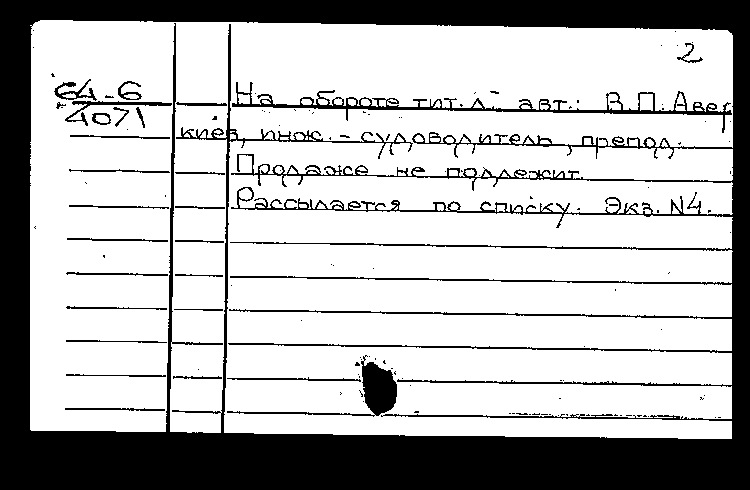 2
64-6
4071
На обороте тит. л. авт.: В.П. Авер
киев, инж. - судоводитель, препод.
Продаже не подлежит.
Рассылается по списку. Экз. N4.